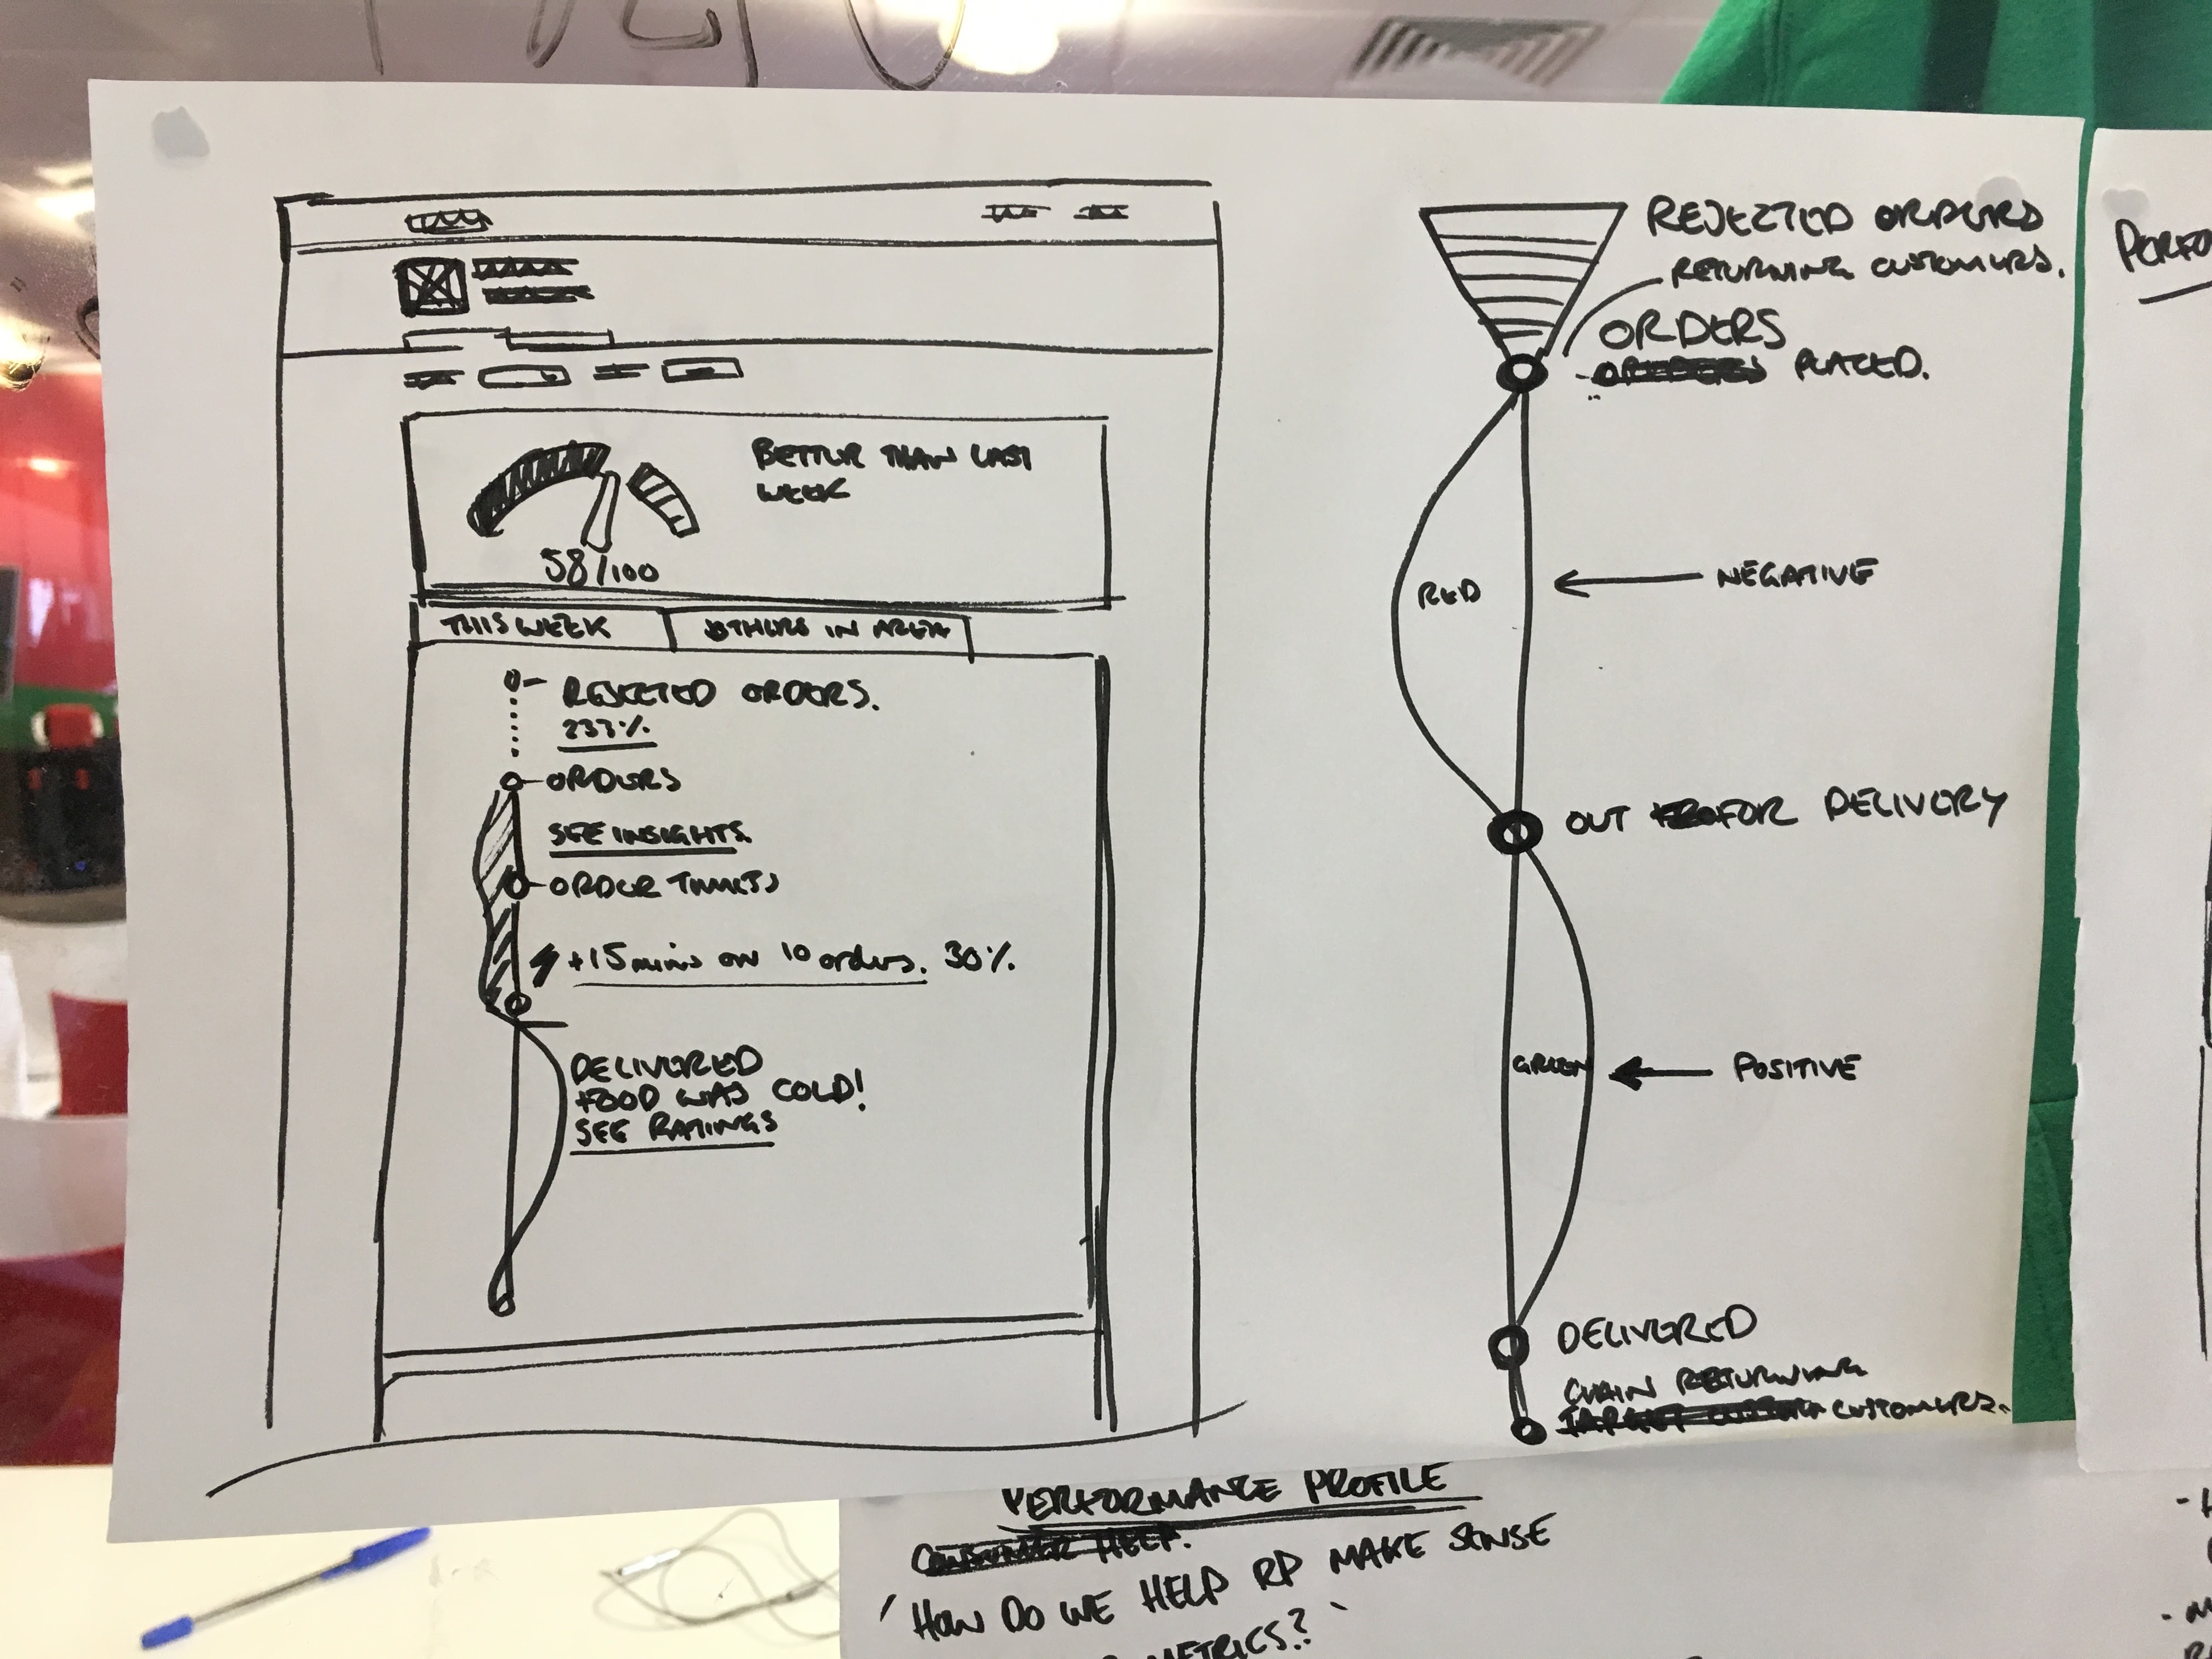 BETTER THAN LAST
WEEK
58/100
THIS WEEK
OTHERS IN AREA
REJECTED ORDERS.
233%
ORDERS
SEE INSIGHTS
ORDER
+15 mins on 10 orders. 30%
DELIVERED
FOOD WAS COLD!
SEE RATINGS
REJECTED ORDERS
RETURNING CUSTOMERS.
ORDERS
PLACED.
RED
NEGATIVE
OUT FOR DELIVERY
GREEN
POSITIVE
DELIVERED
RETURNING
CUSTOMERS.
PERFORMANCE PROFILE
CONSUMER HELP.
'HOW DO WE HELP RP MAKE SENSE
METRICS?'
PERFO